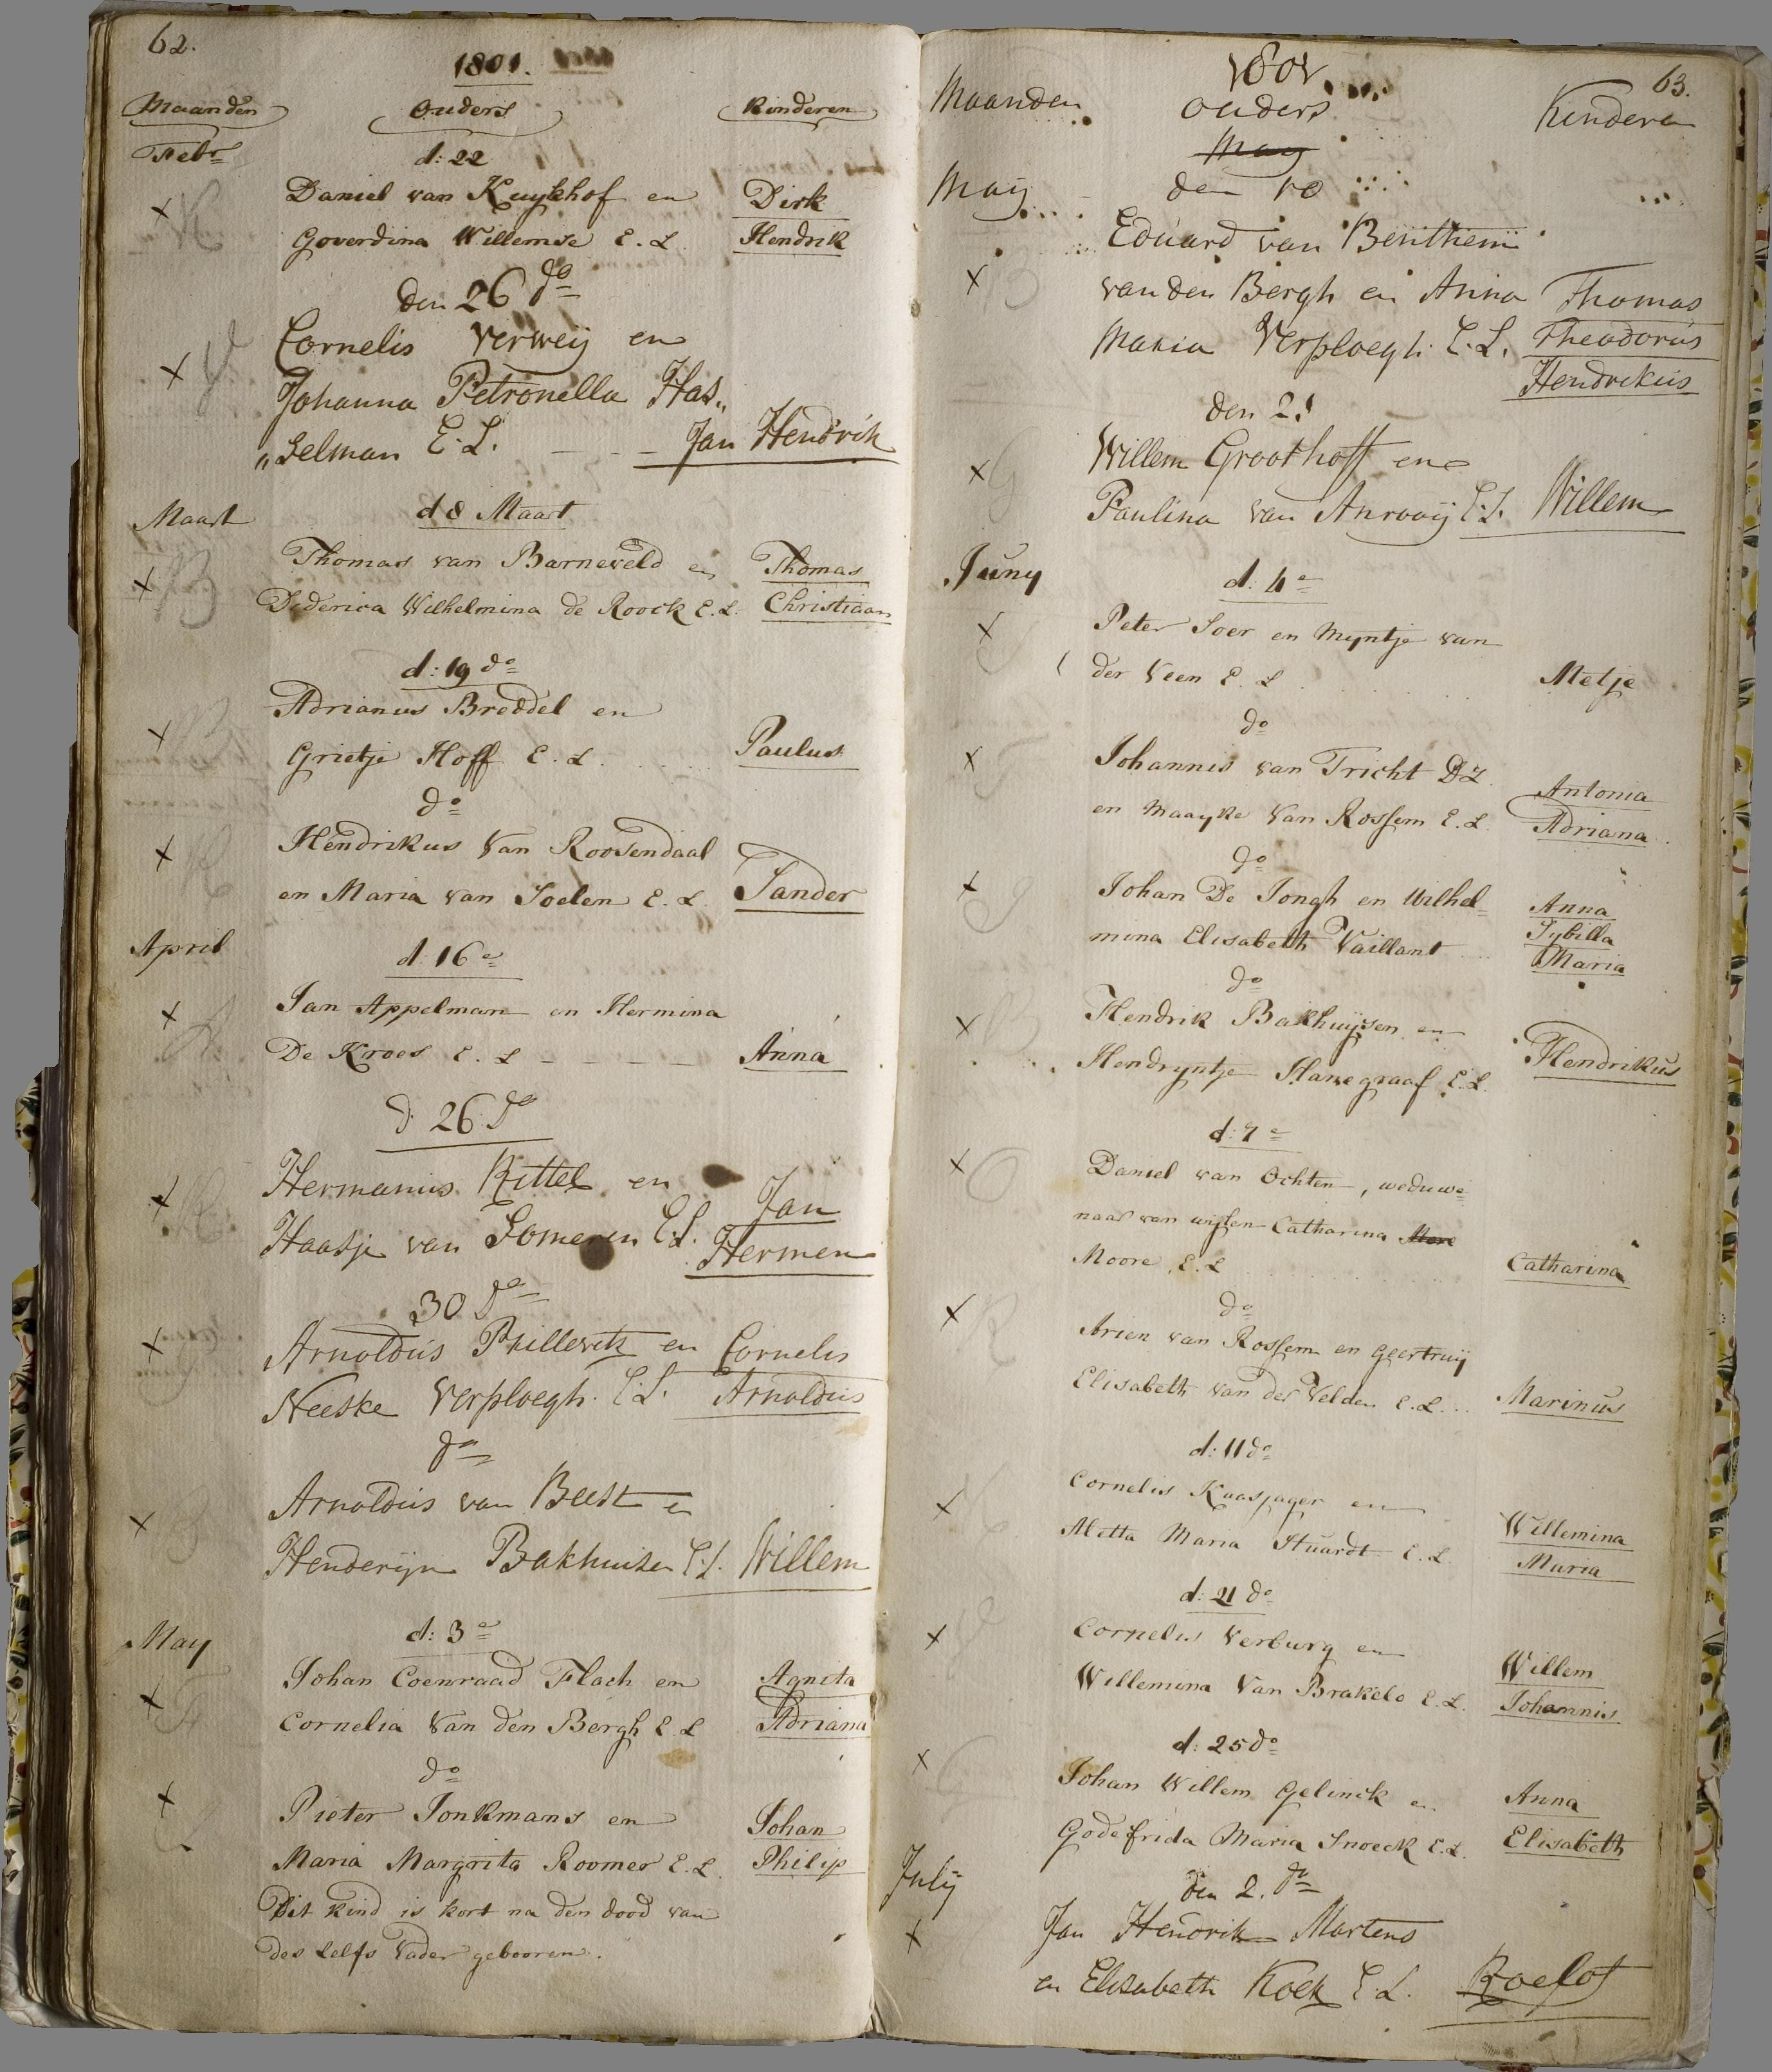 62.
1801.
Maanden Ouders Kinderen
Febr d: 22
Daniel van Kuykhof en Dirk
Goverdina Willemse E. L. Hendrik
den 26 do
Cornelis Verweij en
Johanna Petronella Has„
„selman E. L. - - - Jan Hendrik
Maart d 8 Maart
Thomas van Barneveld en Thomas
Diderica Wilhelmina de Roock E. L. Christiaan
d: 19 do
Adrianus Breddel en
Grietje Hoff E. L. Paulus
do
Hendrikus Van Roosendaal
en Maria van Soelen E. L. Sander
April d: 16e
Jan Appelman en Hermina
De Kroes E. L - - - - Anna
d. 26 do
Hermanus Kittel en Jan
Haasje van Someren E. L. Hermen
30 do
Arnoldus Prillevitz en Cornelis
Neeske Verploegh. E. L. Arnoldus
do
Arnoldus van Beest en
Henderijn Bakhuisen E. L. Willem
May d: 3e
Johan Coenraad Flach en Agnita
Cornelia Van den Bergh E. L Adriana
do
Pieter Jonkmans en Johan
Maria Margrita Roomer E. L. Philip
Dit kind is kort na den dood van
des selfs Vader gebooren.
63.
1801.
Maanden Ouders Kinderen
May
May den 10
Eduard van Benthem
van den Bergh en Anna Thomas
Maria Verploegh. E. L. Theodorus
Hendrikus
den 21
Willem Groothoff en
Paulina van Anrooij E. L. Willem
Juny d: 4e
Peter Soer en Myntje van
der Veen E. L Metje
do
Johannis van Tricht DZ Antonia
en Maayke Van Rossem E. L. Adriana
do
Johan De Jongh en Wilhel= Anna
mina Elisabeth Vaillant Sybilla
Maria
do
Hendrik Bakhuysen en
Hendryntje Hanegraaf E. L. Hendrikus
d: 7e
Daniel van Ochten, weduwe
naar van wijlen Catharina More
Moore E. L Catharina
do
Arien van Rossem en Geertruij
Elisabeth van der Velden E. L. Marinus
d: 11 do
Cornelis Kaasjager en Willemina
Metta Maria Stuardt E. L. Maria
d: 21 do
Cornelis Verburg en Willem
Willemina Van Brakelo E. L. Johannis
d: 25 do
Johan Willem Gelinck en Anna
Godefrida Maria Snoeck E. L. Elisabeth
July den 2. do
Jan Hendrik Martens
en Elisabeth Koek E. L. Roelof